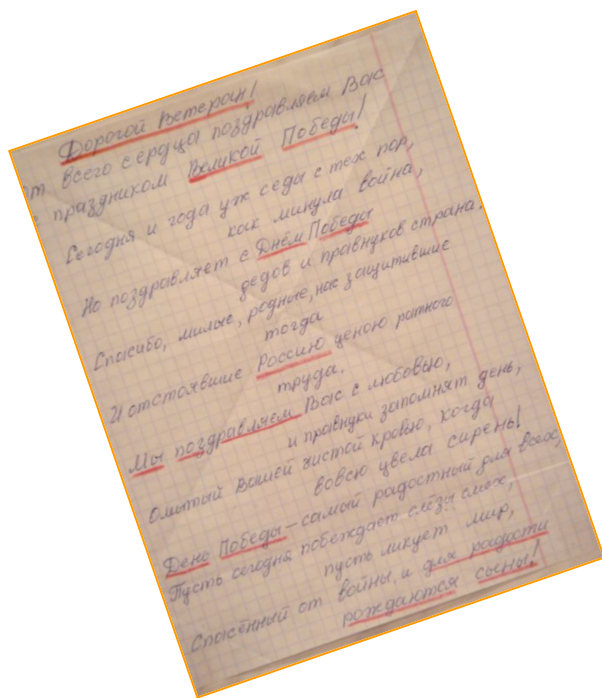 Дорогой Ветеран!
от всего сердца поздравляем Вас
с праздником Великой Победы!
Сегодня и года уж седы с тех пор,
как минула война,
Но поздравляет с Днём Победы
дедов и правнуков страна.
Спасибо, милые, родные, нас защитившие
тогда
И отстоявшие Россию ценою ратного
труда.
Мы поздравляем Вас с любовью,
и правнуки запомнят день,
Омытый Вашей чистой кровью, когда
вовсю цвела сирень!
День Победы – самый радостный для всех,
Пусть сегодня побеждает слёзы смех,
пусть ликует мир,
Спасённый от войны, и для радости
рождаются сыны!